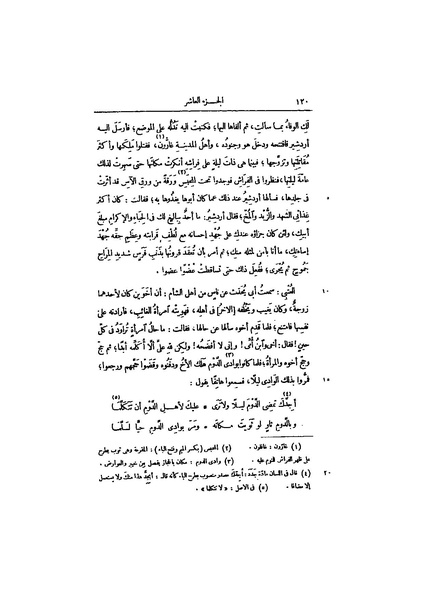 ١٢٠ الجزء العاشر
لكِ الوفاءُ بما سألتِ، ثم ألقاها إليها؛ فكتبتْ إليه تَدُلُّه على الموضع؛ فأرسلَ إليه
أردشير فافتتحه ودخل هو وجنوده، وأهلُ المدينة غارُّون(١)، فقتلوا مَلِكَها وأكثر
مُقاتِلتها وتزوّجها؛ فبينما هي ذاتَ ليلةٍ على فراشه أنكرتْ مكانَها حتى سهِرتْ لذلك
عامّة ليلتها، فنظروا في الفِراش فوجدوا تحت المِحْبَس(٢) ورقةً من ورق الآس قد أثّرتْ
٥ في جلدها، فسألها أردشيرُ عند ذلك عما كان أبوها يَغذُوها به؛ فقالت: كان أكثر
غذائي الشَّهْد والزُّبد والمُخّ؛ فقال أردشير: ما أحدٌ ببالغٍ لك في الحِباء والإكرام مبلغَ
أبيكِ، ولئن كان جزاؤه عندكِ على جُهْدِ إحسانه مع لُطْفِ قرابته وعِظَم حقِّه جُهْدَ
إساءتكِ، ما أنا بآمنٍ لمثله منكِ؛ ثم أمر بأن تُعقَد قرونُها بذَنَب فرس شديد المِراح
جَموح ثم يُجرَى؛ ففُعِل ذلك حتى تساقطتْ عضوًا عضوا.
١٠ العُتْبيّ: سمعتُ أبي يُحدّث عن ناسٍ من أهل الشأم: أن أخوَين كان لأحدهما
زوجةٌ، وكان يغيب ويَخْلُفه [الآخرُ] في أهله، فهَوِيَتْه امرأةُ الغائب، فأرادتْه على
نفسها فامتنع؛ فلما قدم أخوه سألها عن حالها، فقالت: ما حالُ امرأةٍ تُراوَد في كلّ
حينٍ! فقال: أخي وابنُ أُمّي! وإني لا أفضَحُه! ولكن لله عليَّ ألّا أُكلّمه أبدًا؛ ثم حجّ
وحجّ أخوه والمرأةُ؛ فلما كانوا بوادي الدَّوْم(٣) هَلَك الأخُ ودفنوه وقضَوْا حجَّهم ورجعوا؛
١٥ فمرُّوا بذلك الوادي ليلًا، فسمعوا هاتفًا يقول:
أَجِدَّكَ(٤) تَمضي الدَّوْمَ ليلًا ولا ترَى * عليك لأهـل الدَّوْمِ أن تتكلّما(٥)
وبالدَّومِ ثاوٍ لو ثويتَ مكانَه * ومرَّ بوادي الدَّومِ حيَّا لسلّما
(١) غارّون: غافلون. (٢) المحبس (بكسر الميم وفتح الباء): المقرمة وهي ثوب يطرح
على ظهر الفراش للنوم عليه. (٣) وادي الدوم: مكان بالحجاز يفصل بين خيبر والعوارض.
٢٠ (٤) قال في اللسان مادّة جدد: أجدّك مصدر منصوب بطرح الباء كأنه قال: أبجِدٍّ هذا منك ولا يستعمل
إلا مضافا. (٥) في الأصل: «لا تتكلما».